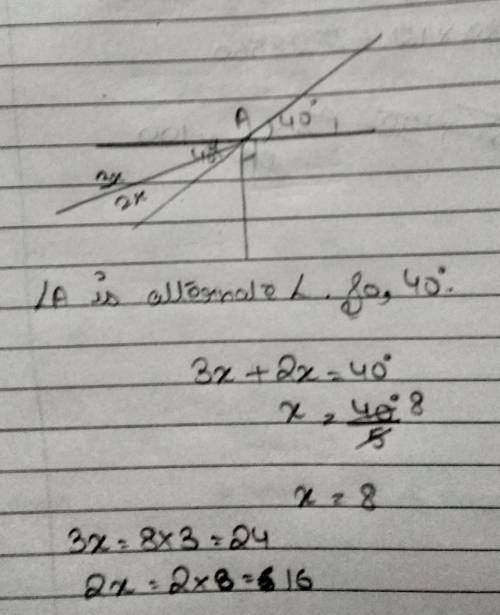 A 40°
40°
3x
2x
∠A is alternate ∠. So, 40°.
3x + 2x = 40°
x = 40° 8
5
x = 8
3x = 8×3 = 24
2x = 2×8 = 16